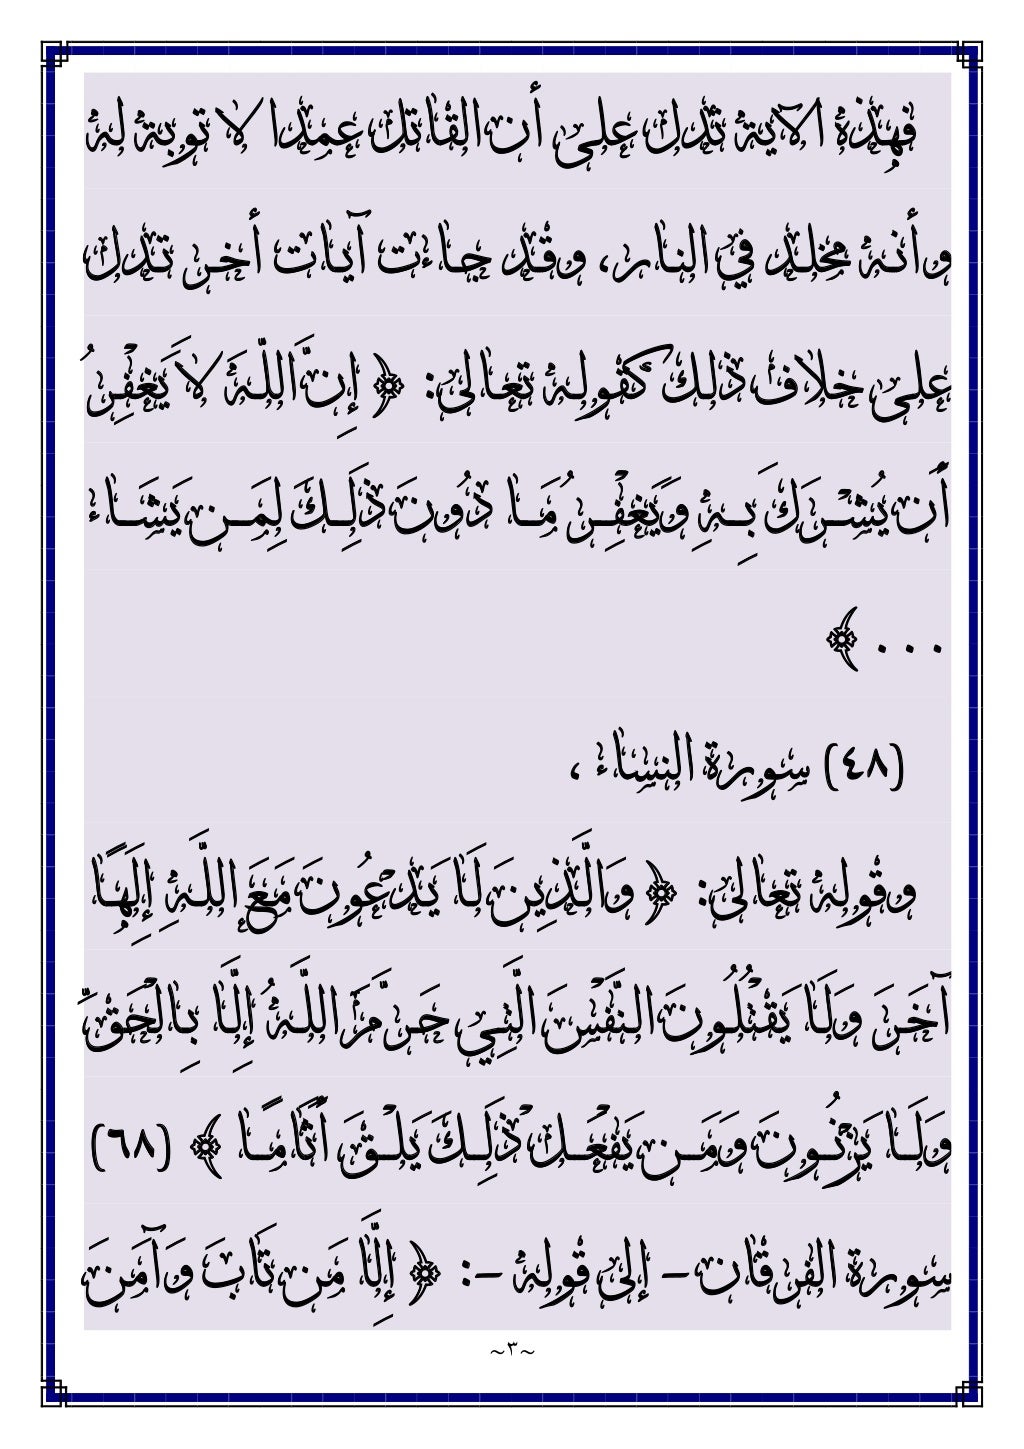 فهذه الآية تدل على أن القاتل عمدا لا توبة له
وأنه مخلد في النار، وقد جاءت آيات أخر تدل
على خلاف ذلك كقوله تعالى: ﴿ إِنَّ اللَّهَ لا يَغْفِرُ
أَن يُشْرَكَ بِهِ وَيَغْفِرُ مَا دُونَ ذَلِكَ لِمَن يَشَاء
... ﴾
(٤٨) سورة النساء ،
وقوله تعالى: ﴿ وَالَّذِينَ لَا يَدْعُونَ مَعَ اللَّهِ إِلَهًا
آخَرَ وَلَا يَقْتُلُونَ النَّفْسَ الَّتِي حَرَّمَ اللَّهُ إِلَّا بِالْحَقِّ
وَلَا يَزْنُونَ وَمَن يَفْعَلْ ذَلِكَ يَلْقَ أَثَامًا ﴾ (٦٨)
سورة الفرقان – إلى قوله –: ﴿ إِلَّا مَن تَابَ وَآمَنَ
~٣~